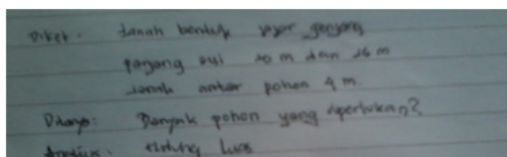 Diket : tanah bentuk jajar genjang
panjang sisi 20 m dan 26 m
jarak antar pohon 4 m.
Ditanya : Banyak pohon yang diperlukan?
hitung luas